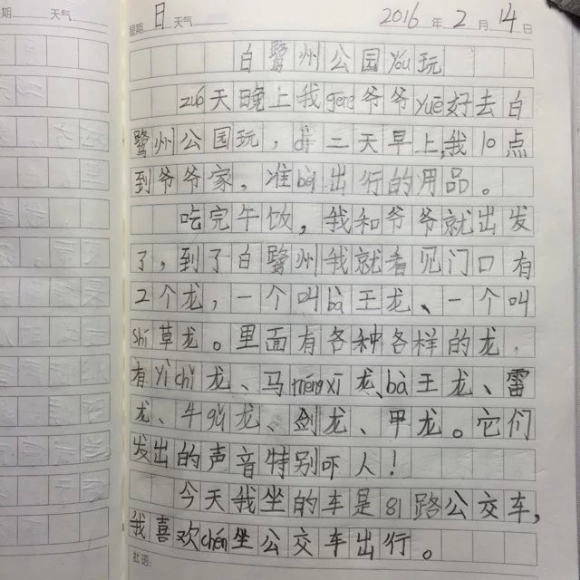 期 天气
星期 日 天气 2016 年 2 月 14 日
白鹭州公园you玩
zuó天晚上我gēng爷爷yuē好去白
鹭州公园玩，dì二天早上，我10点
到爷爷家，准bèi出行的用品。
吃完午饭，我和爷爷就出发
了，到了白鹭州我就看见门口有
2个龙，一个叫bà王龙、一个叫
shí草龙。里面有各种各样的龙.
有yìchǐ龙、马méngxī龙、bà王龙、雷
龙、牛龙、剑龙、甲龙。它们
发出的声音特别吓人！
今天我坐的车是81路公交车，
我喜欢chéng坐公交车出行。
批语: